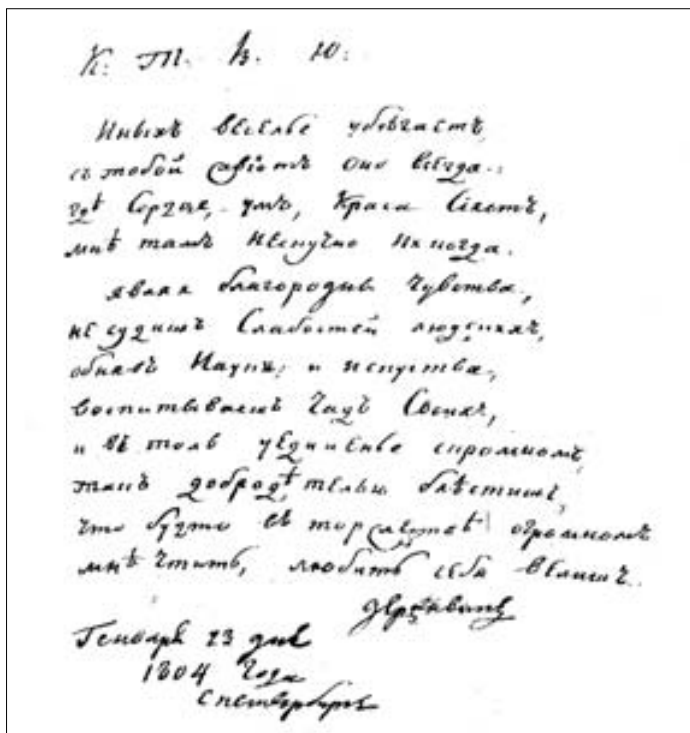 К: Т. В. Ю:
Иныхъ веселье убѣгаетъ,
съ тобой оно всегда.
гдѣ Сердце, умъ, Краса Сіяетъ,
мнѣ тамъ нескучно никогда.
являя благородны чувства,
не судишъ Слабостей людскихъ,
обнявъ Науки, и искуства,
воспитываешъ Чадъ Своихъ,
и въ толь уединеньѣ скромномъ
такъ добродѣтелью блѣстишъ,
что будто въ торжествѣ огромномъ
мнѣ чтить, любить себя велишъ.
Державинъ
Генваря 23 дня
1804 Года